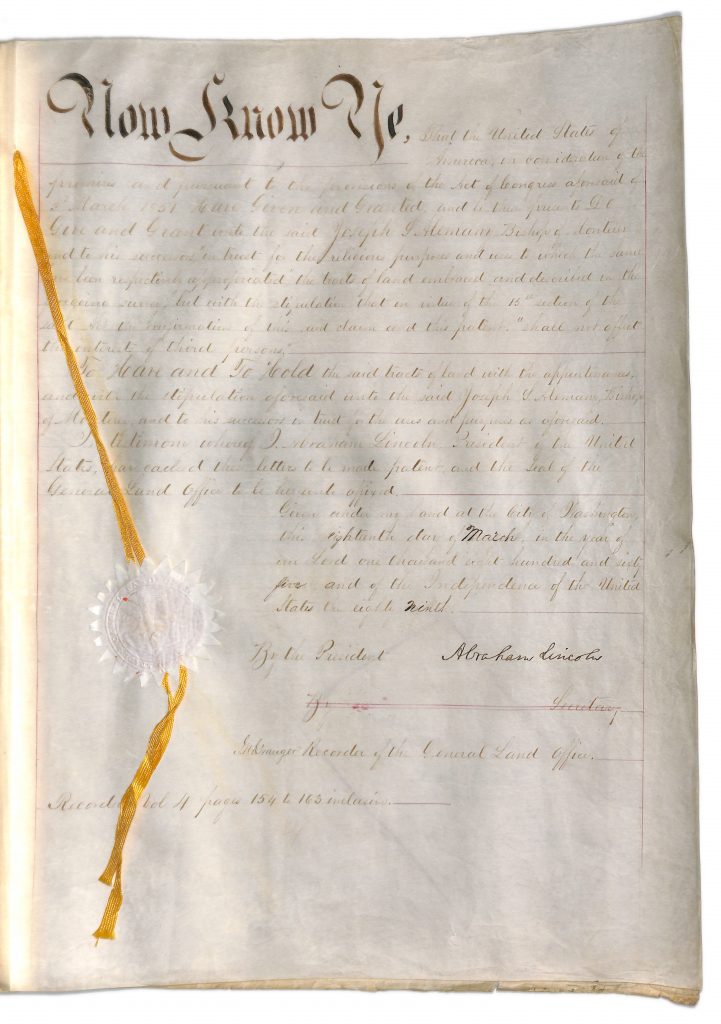 Now Know Ye, That the United States of
America, in consideration of the
premises and pursuant to the provisions of the Act of Congress aforesaid of
3d March 1851 Have Given and Granted, and by these presents Do
Give and Grant unto the said Joseph S. Alemany Bishop of Monterey
and to his successors "in trust for the religious purposes and uses to which the same
have been respectively appropriated" the tracts of land embraced and described in the
foregoing survey, but with the stipulation that in virtue of the 15th section of the
said Act the confirmation of this said claim and this patent "shall not affect
the interests of third persons."
To Have and To Hold the said tracts of land with the appurtenances,
and with the stipulation aforesaid unto the said Joseph S. Alemany, Bishop
of Monterey, and to his successors in trust for the uses and purposes as aforesaid.
In testimony whereof I, Abraham Lincoln, President of the United
States, have caused these letters to be made patent, and the Seal of the
General Land Office to be hereunto affixed.
Given under my hand at the City of Washington,
this eighteenth day of March, in the year of
our Lord one thousand eight hundred and sixty
five and of the Independence of the United
States the eighty ninth.
By the President Abraham Lincoln
By Secretary
Recorder of the General Land Office.
Recorded Vol 4 pages 154 to 163 inclusive.